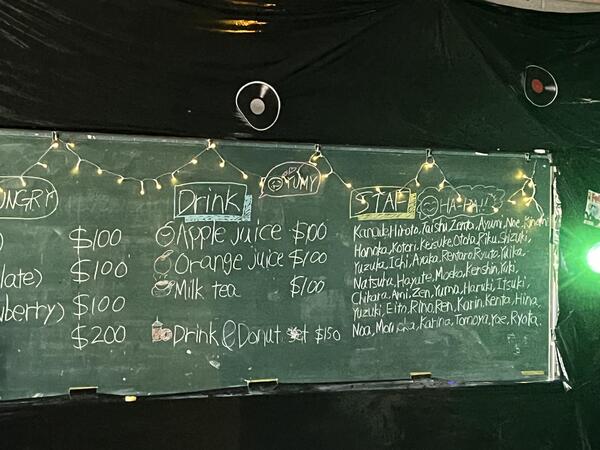 UNGRY
$100
late) $100
wberry) $100
$200
Drink
YUMY
Apple juice $100
Orange juice $100
Milk tea $100
Drink & Donut set $150
STAFF
HA-PA!!
Kanade, Hiroto, Taishi, Zenta, Ayumi, Noe,
Hanaka, Kotori, Keisuke, Otoha, Riku, Shizuki,
Yuzuka, Ichi, Ayaka, Rentaro, Ryuto, Yuika,
Natsuha, Hayate, Moeka, Kenshin, Yuki,
Chikara, Ami, Zen, Yuma, Haruki, Itsuki,
Yuzuki, Eito, Rino, Ren, Karin, Kenta, Hina,
Noa, Karina, Tomoya, Yae, Ryota.